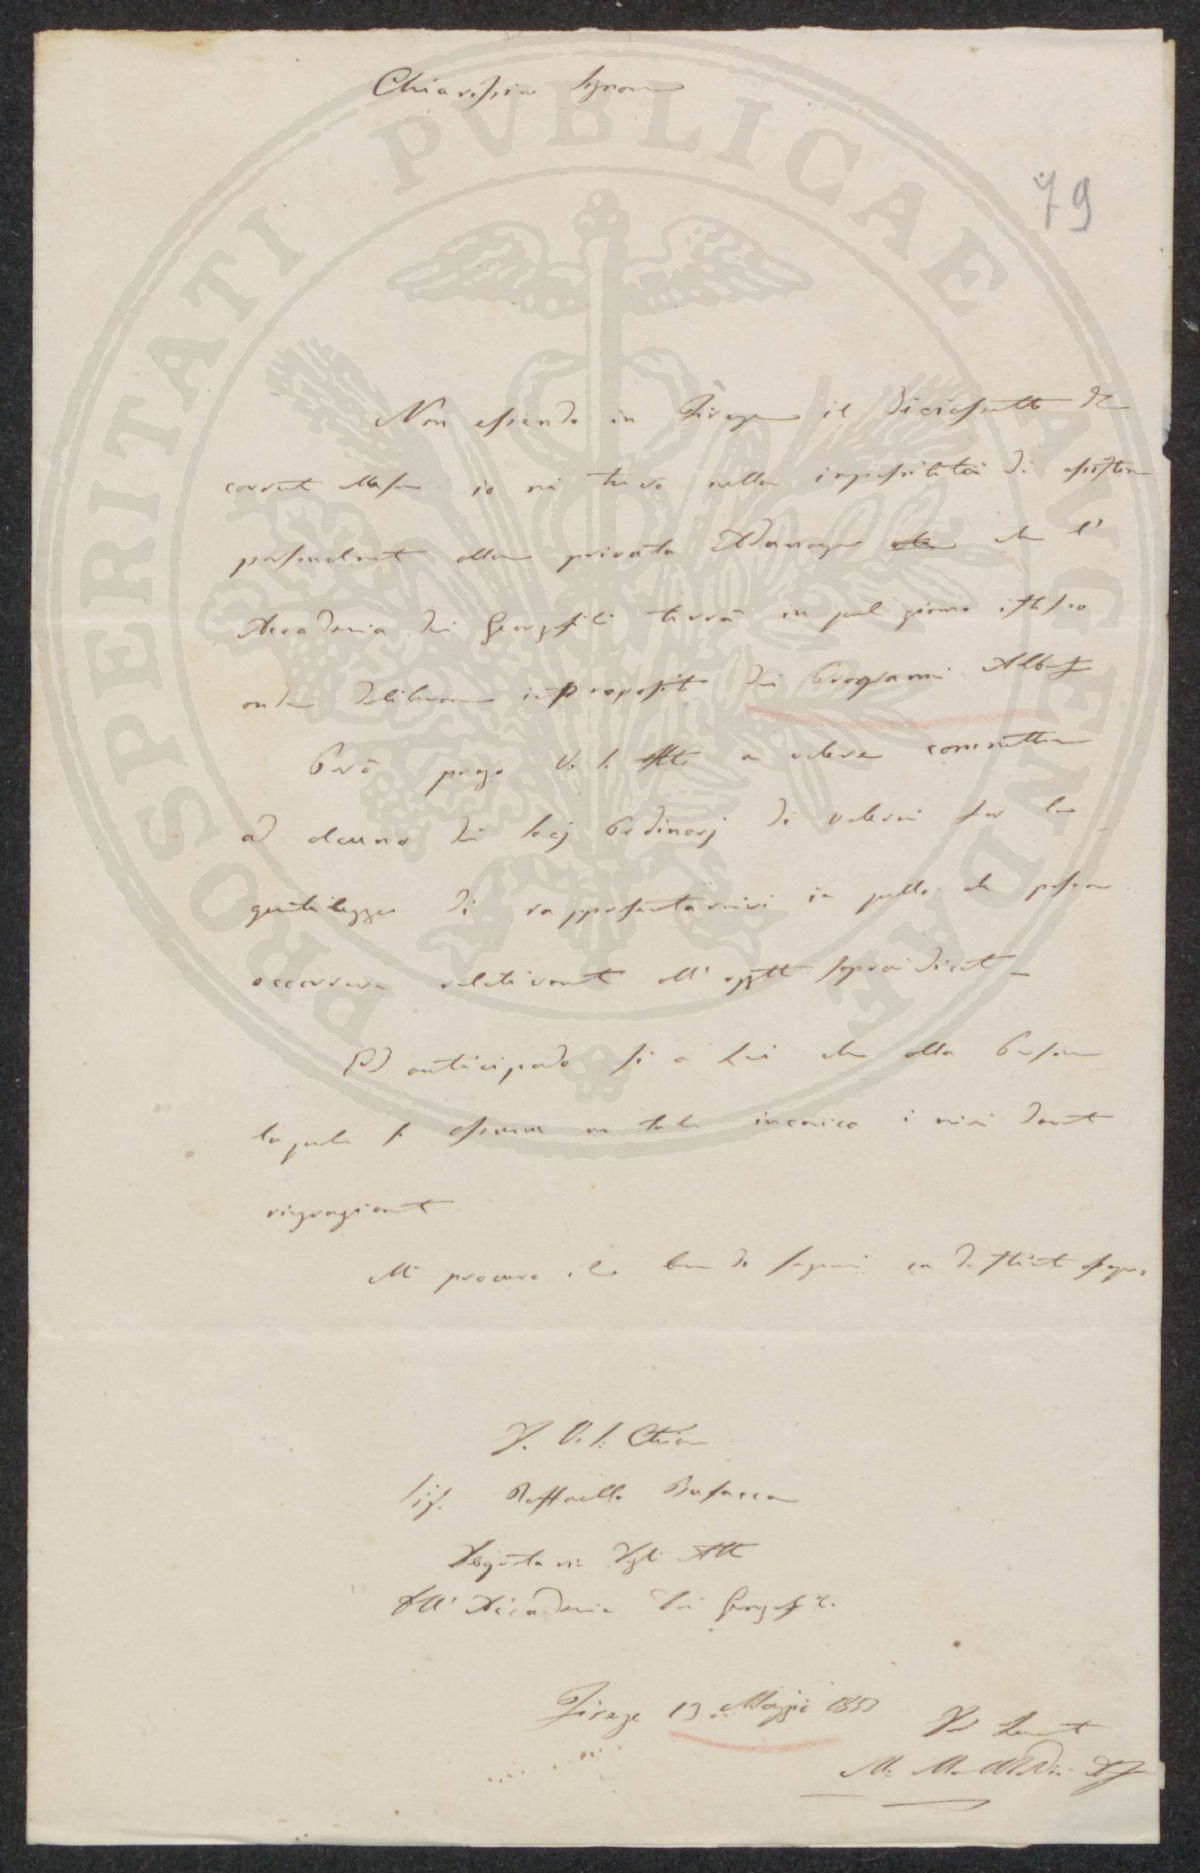 Chiarissimo Signore
79
Non essendo in Firenze il diciassette del
corrente Mese io mi trovo nella impossibilità di assistere
personalmente alla privata Adunanza che che l'
Accademia dei Georgofili terrà in quel giorno istesso
onde deliberare in proposito dei Programmi Alberti
Però prego V. S. Ill. a volere commettere
ad alcuno dei Socj Ordinarj di volermi far la
gentilezza di rappresentarmivi in quello che possa
occorrere relativamente all' oggetto sopraindicato
Ed anticipando sì a Lei che alla Persona
la quale si assuma un tale incarico i miei dovuti
ringraziamenti
Mi procuro il bene di segnarmi con distinto ossequio
Di V. S. Chiar.
Sig. Raffaello Busacca
Segretario degli Atti
dell' Accademia dei Georgofili
Firenze 13 Maggio 1853
PROSPERITATI PVBLICAE AVGENDAE